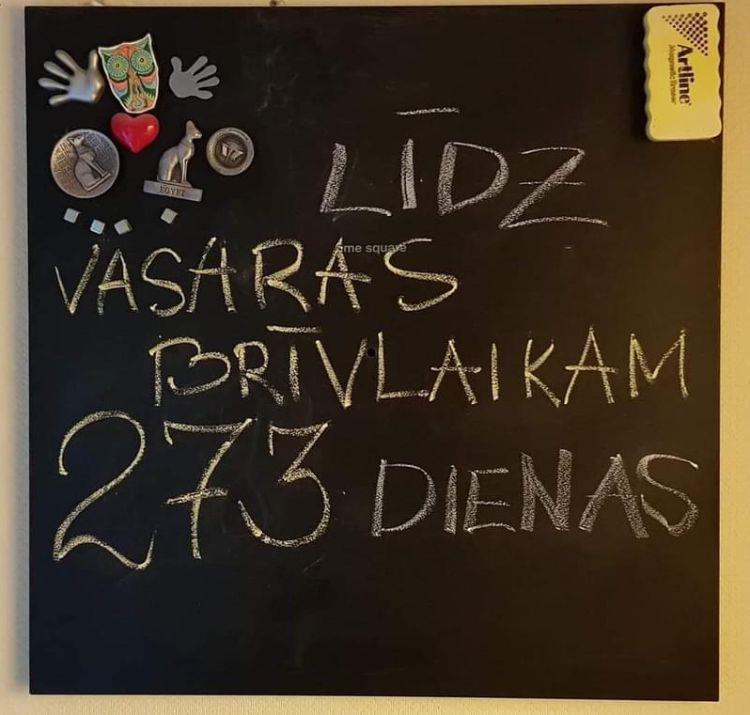 Artline
Magnetic Eraser
EGYPT
LĪDZ
me square
VASARAS
BRĪVLAIKAM
273 DIENAS